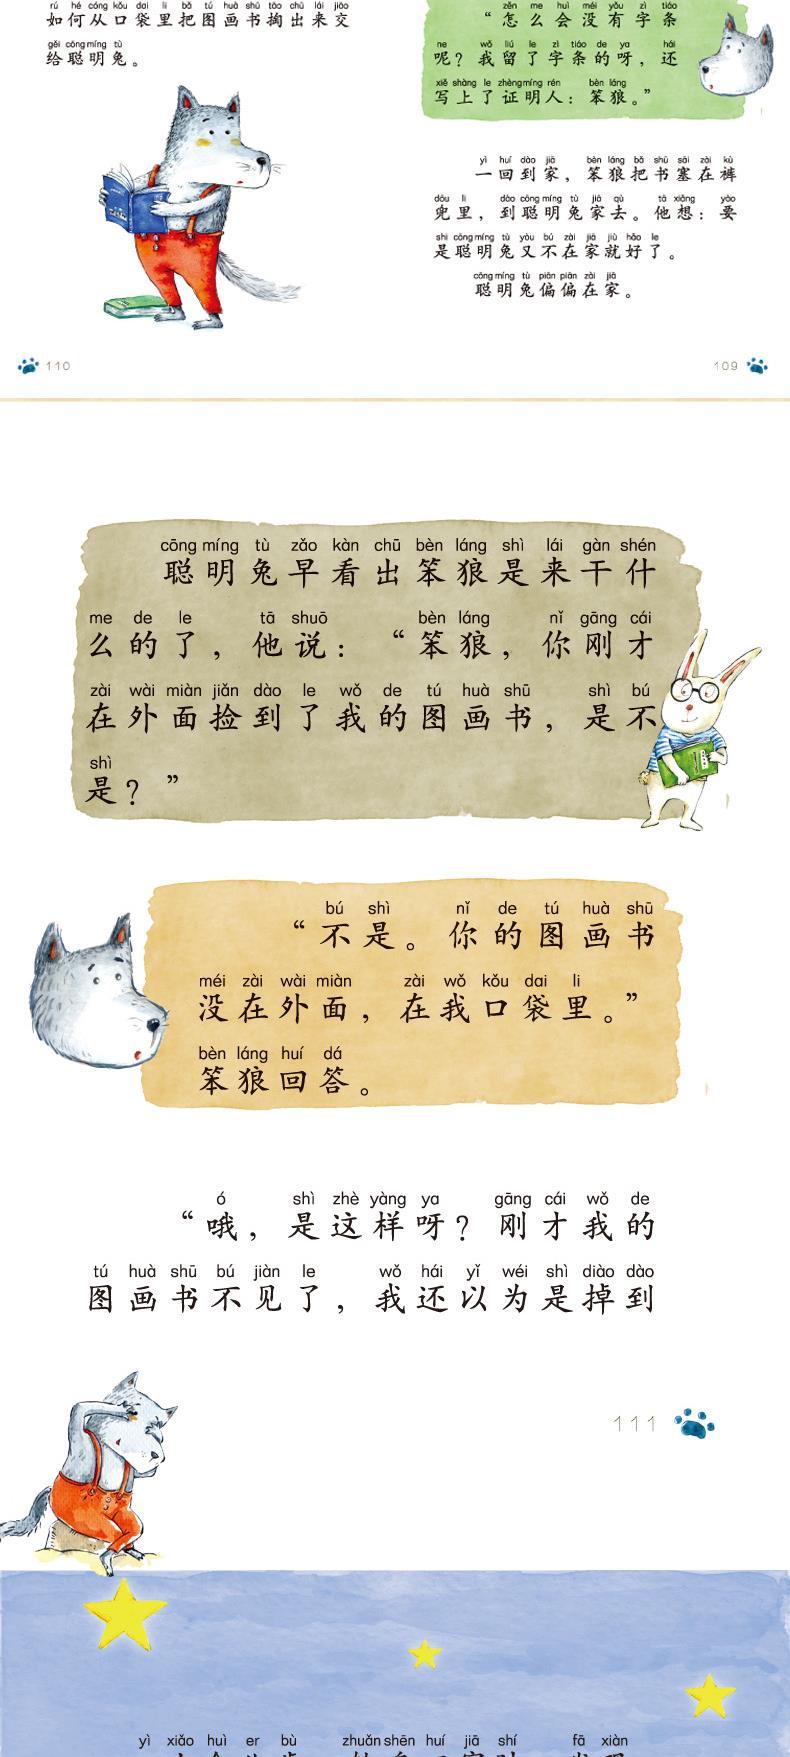 rú hé cóng kǒu dai li bǎ tú huà shū tāo chū lái jiāo
如何从口袋里把图画书掏出来交
gěi cōng míng tù
给聪明兔。
110
zěn me huì méi yǒu zì tiáo
“怎么会没有字条
ne wǒ liú le zì tiáo de ya hái
呢？我留了字条的呀，还
xiě shàng le zhèng míng rén bèn láng
写上了证明人：笨狼。”
yì huí dào jiā bèn láng bǎ shū sāi zài kù
一回到家，笨狼把书塞在裤
dōu li dào cōng míng tù jiā qù tā xiǎng yào
兜里，到聪明兔家去。他想：要
shi cōng míng tù yòu bú zài jiā jiù hǎo le
是聪明兔又不在家就好了。
cōng míng tù piān piān zài jiā
聪明兔偏偏在家。
109
cōng míng tù zǎo kàn chū bèn láng shì lái gàn shén
聪明兔早看出笨狼是来干什
me de le tā shuō bèn láng nǐ gāng cái
么的了，他说：“笨狼，你刚才
zài wài miàn jiǎn dào le wǒ de tú huà shū shì bú
在外面捡到了我的图画书，是不
shì
是？”
bú shì nǐ de tú huà shū
“不是。你的图画书
méi zài wài miàn zài wǒ kǒu dai li
没在外面，在我口袋里。”
bèn láng huí dá
笨狼回答。
ó shì zhè yàng ya gāng cái wǒ de
“哦，是这样呀？刚才我的
tú huà shū bú jiàn le wǒ hái yǐ wéi shì diào dào
图画书不见了，我还以为是掉到
111
yì xiǎo huì er bù zhuǎn shēn huí jiā shí fā xiàn